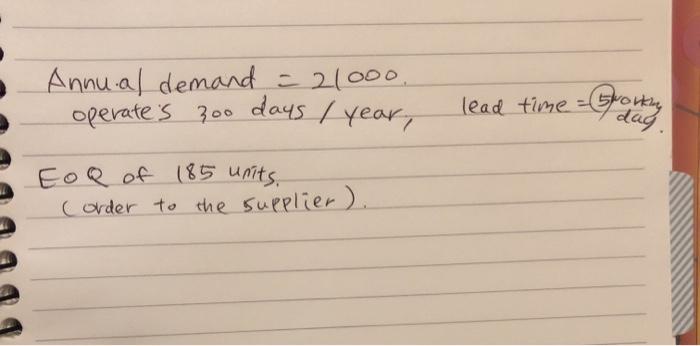 Annual demand = 21000.
operate's 300 days / year, lead time = 5 working
day.
EOQ of 185 units.
(order to the supplier).